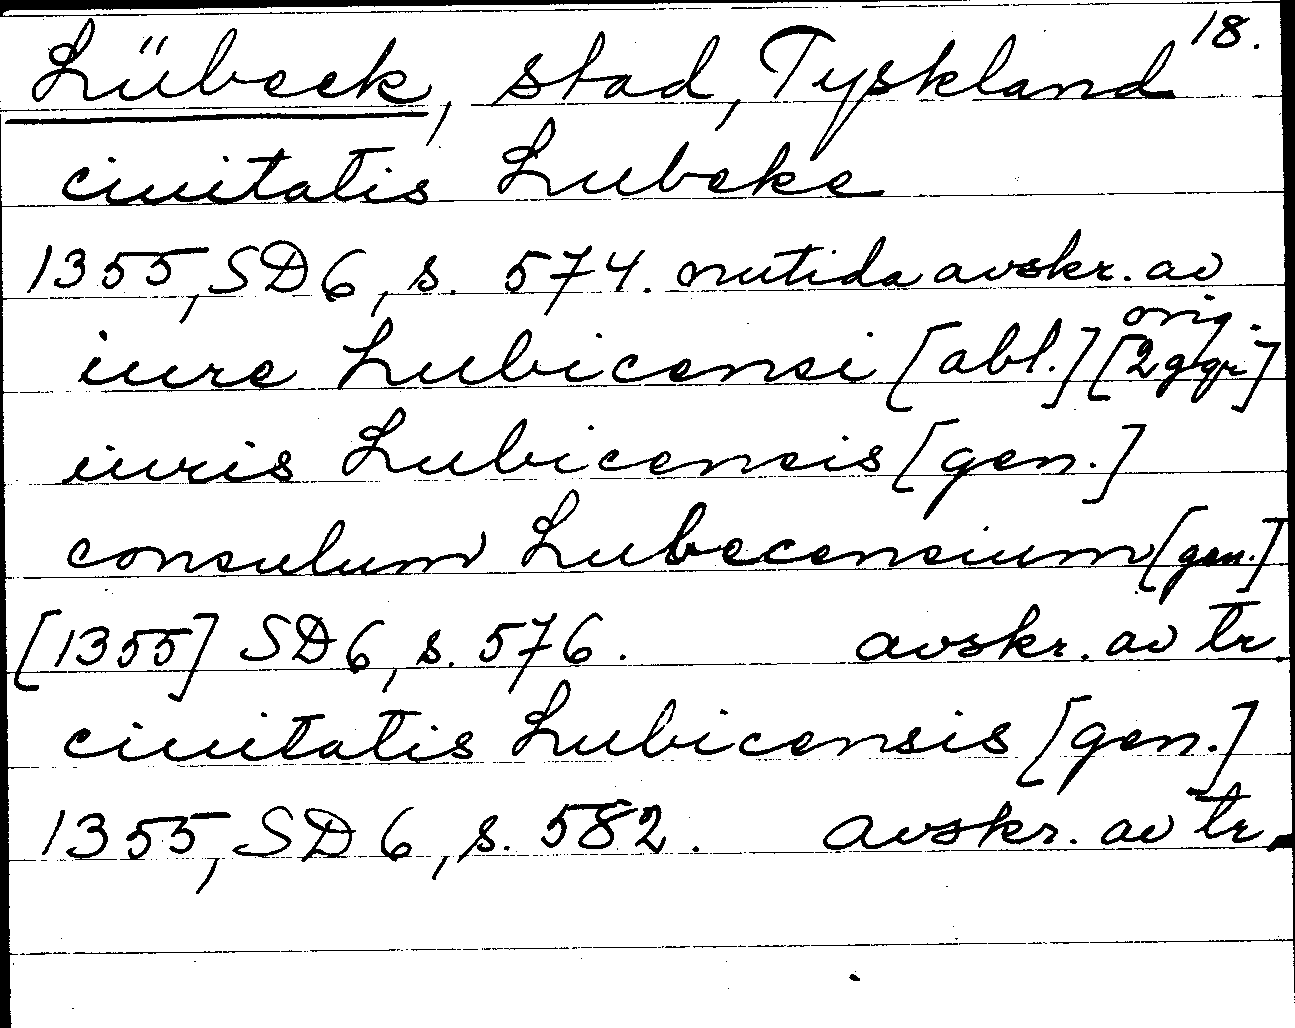 18.
Lübeck, stad, Tyskland
ciuitatis Lubeke
1355, SD 6, s. 574. nutida avskr. av orig.
iure Lubicensi [abl.] [2 ggr]
iuris Lubicensis [gen.]
consulum Lubecensium [gen.]
[1355] SD 6, s. 576. avskr. av tr.
ciuitatis Lubicensis [gen.]
1355, SD 6, s. 582. avskr. av tr.